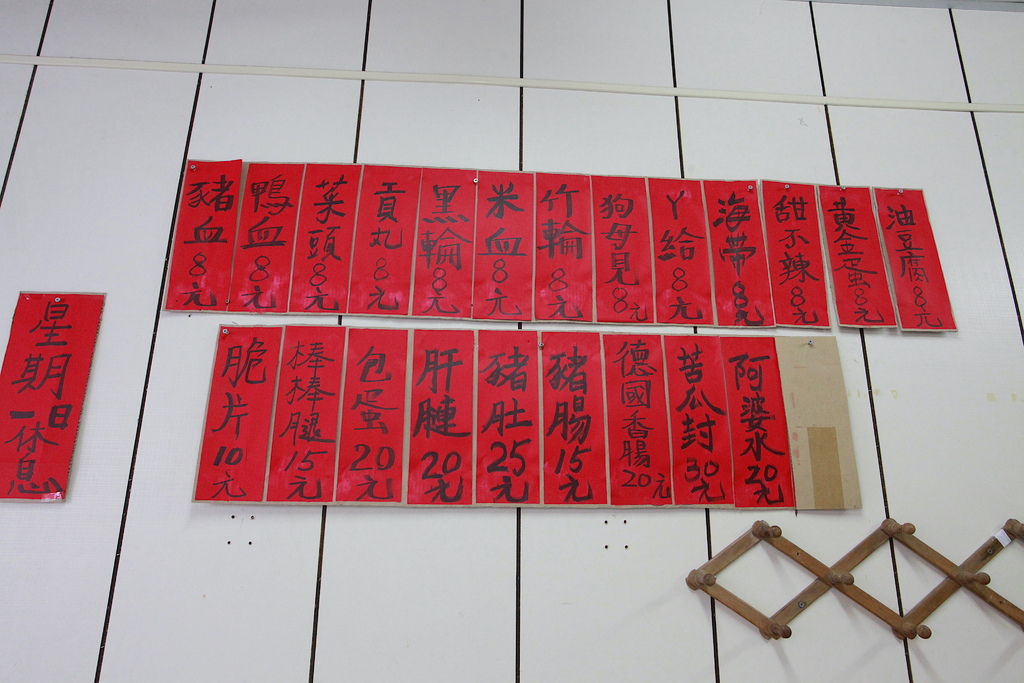 豬血8元
鴨血8元
菜頭8元
貢丸8元
黑輪8元
米血8元
竹輪8元
狗母見8元
丫給8元
海帶8元
甜不辣8元
黄金蛋8元
油豆腐8元
脆片10元
棒棒腿15元
包蛋20元
肝腱20元
豬肚25元
豬腸15元
德國香腸20元
苦瓜封30元
阿婆水20元
星期日
一休息